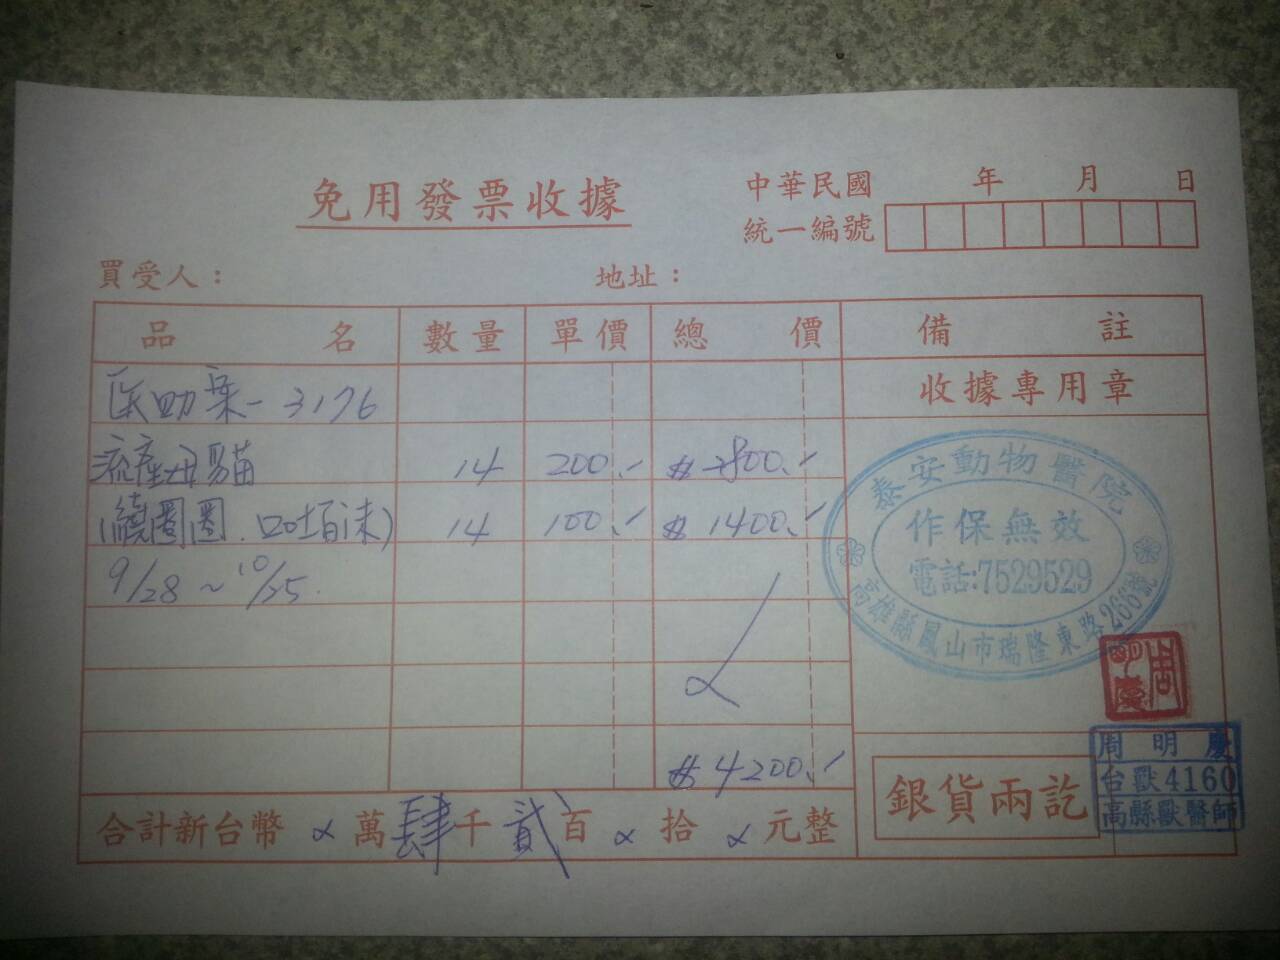 免用發票收據
中華民國 年 月 日
統一編號
買受人： 地址：
品名 數量 單價 總價 備註
醫助案-3176 收據專用章
流產母貓 14 200.- $2800.-
(繞圈圈.口吐白沫) 14 100.- $1400.-
9/28~10/25.
$4200.-
合計新台幣 萬肆千貳百 拾 元整
泰安動物醫院
作保無效
電話:7529529
高雄縣鳳山市瑞隆東路266號
周明慶
銀貨兩訖
周明慶
台獸4160
高縣獸醫師